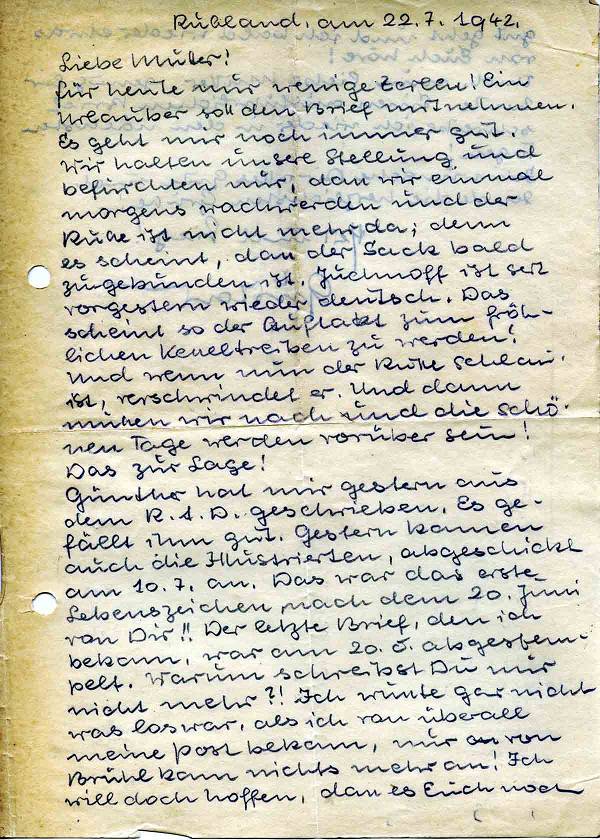 Rußland, am 22.7.1942.
Liebe Mutter!
für heute nur wenige Zeilen! Ein
Urlauber soll den Brief mitnehmen.
Es geht mir noch immer gut.
Wir halten unsere Stellung und
befürchten nur, daß wir einmal
morgens wachwerden und der
Ruße ist nicht mehr da; denn
es scheint, daß der Sack bald
zugebunden ist. Juchnoff ist seit
vorgestern wieder deutsch. Das
scheint so der Auftakt zum fröh-
lichen Keßeltreiben zu werden!
Und wenn nun der Ruße schlau
ist, verschwindet er. Und dann
müßen wir nach und die schö-
nen Tage werden vorüber sein!
Das zur Lage!
Günther hat mir gestern aus
dem R.A.D. geschrieben. Es ge-
fällt ihm gut. Gestern kamen
auch die Illustrierten, abgeschickt
am 10.7. an. Das war das erste
Lebenszeichen nach dem 20. Juni
von Dir!! Der letzte Brief, den ich
bekam, war am 20.5. abgestem-
pelt. Warum schreibst Du mir
nicht mehr?! Ich wußte gar nicht
was los war, als ich von überall
meine Post bekam, nur von
Brühl kam nichts mehr an! Ich
will doch hoffen, daß es Euch noch